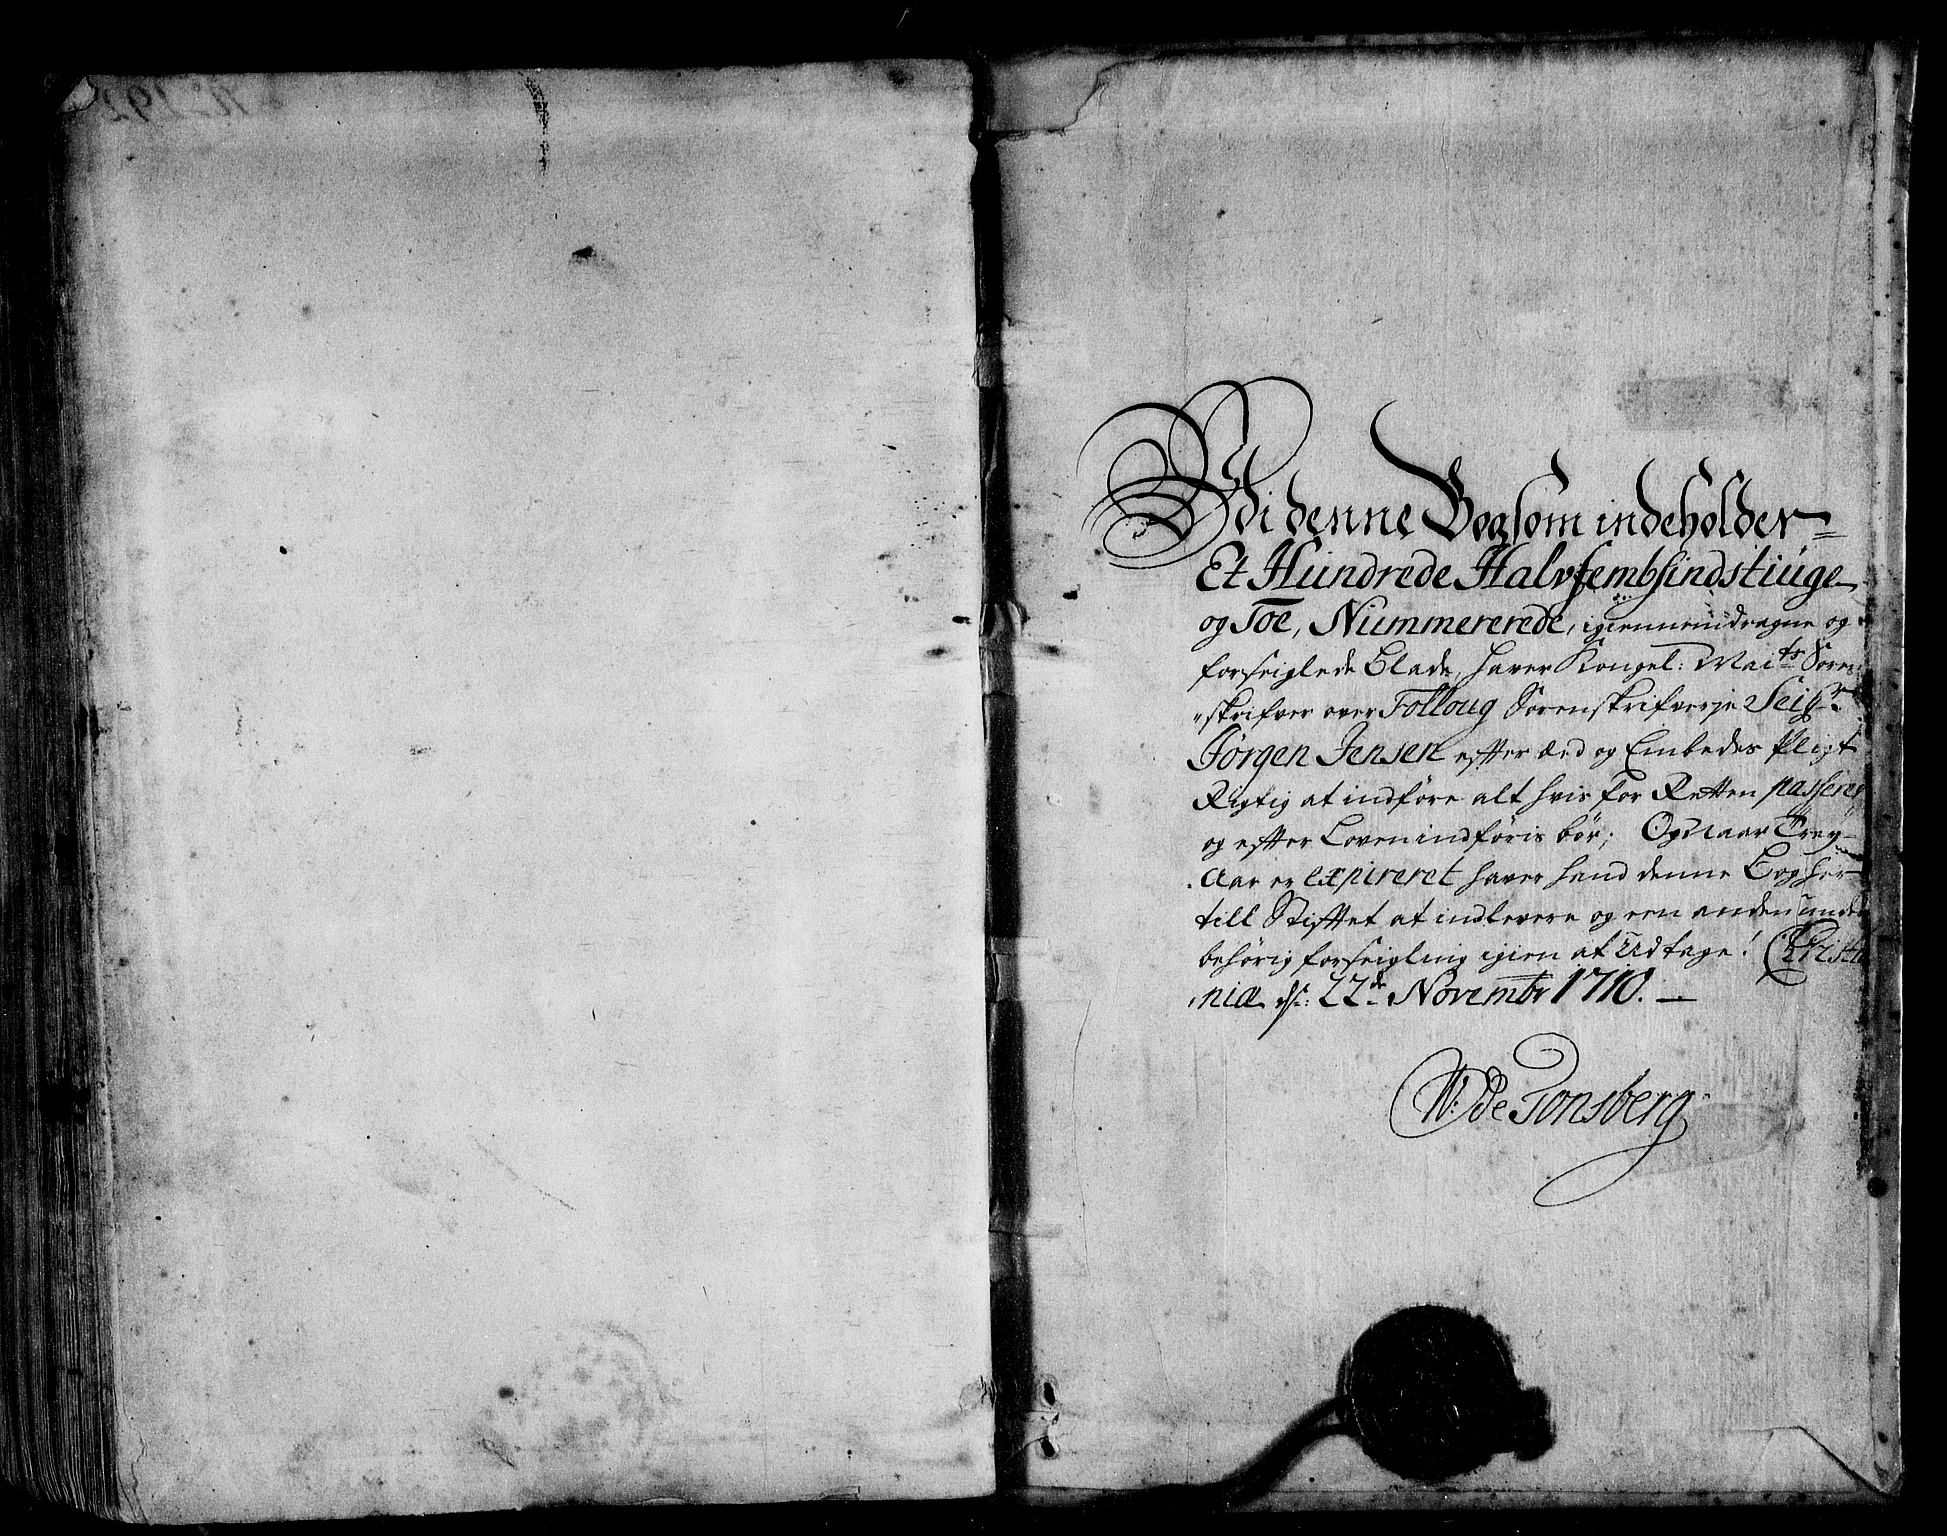 No 192
Udi denne Bog som indeholder
Et Hundrede Halvfembsindstiuge
og Toe, Nummererede, igiennemdragne og
forseiglede Blade, haver Kongel: Mai^ts Soren
skrifver over Folloug Sorenskrifverje Seig^r
Jørgen Jensen effter æed og Embedes Pligt
Rigtig at indføre alt hvis for Retten passerer
og effter Loven indføris bør; Og naar Trey
Aar er expireret haver hand denne Bog her
till Stifftet at indlevere og een anden under
behørig forseigling igien at Udtage! Christia
niæ d: 22de Novembr 1710.
W: de Tonsberg